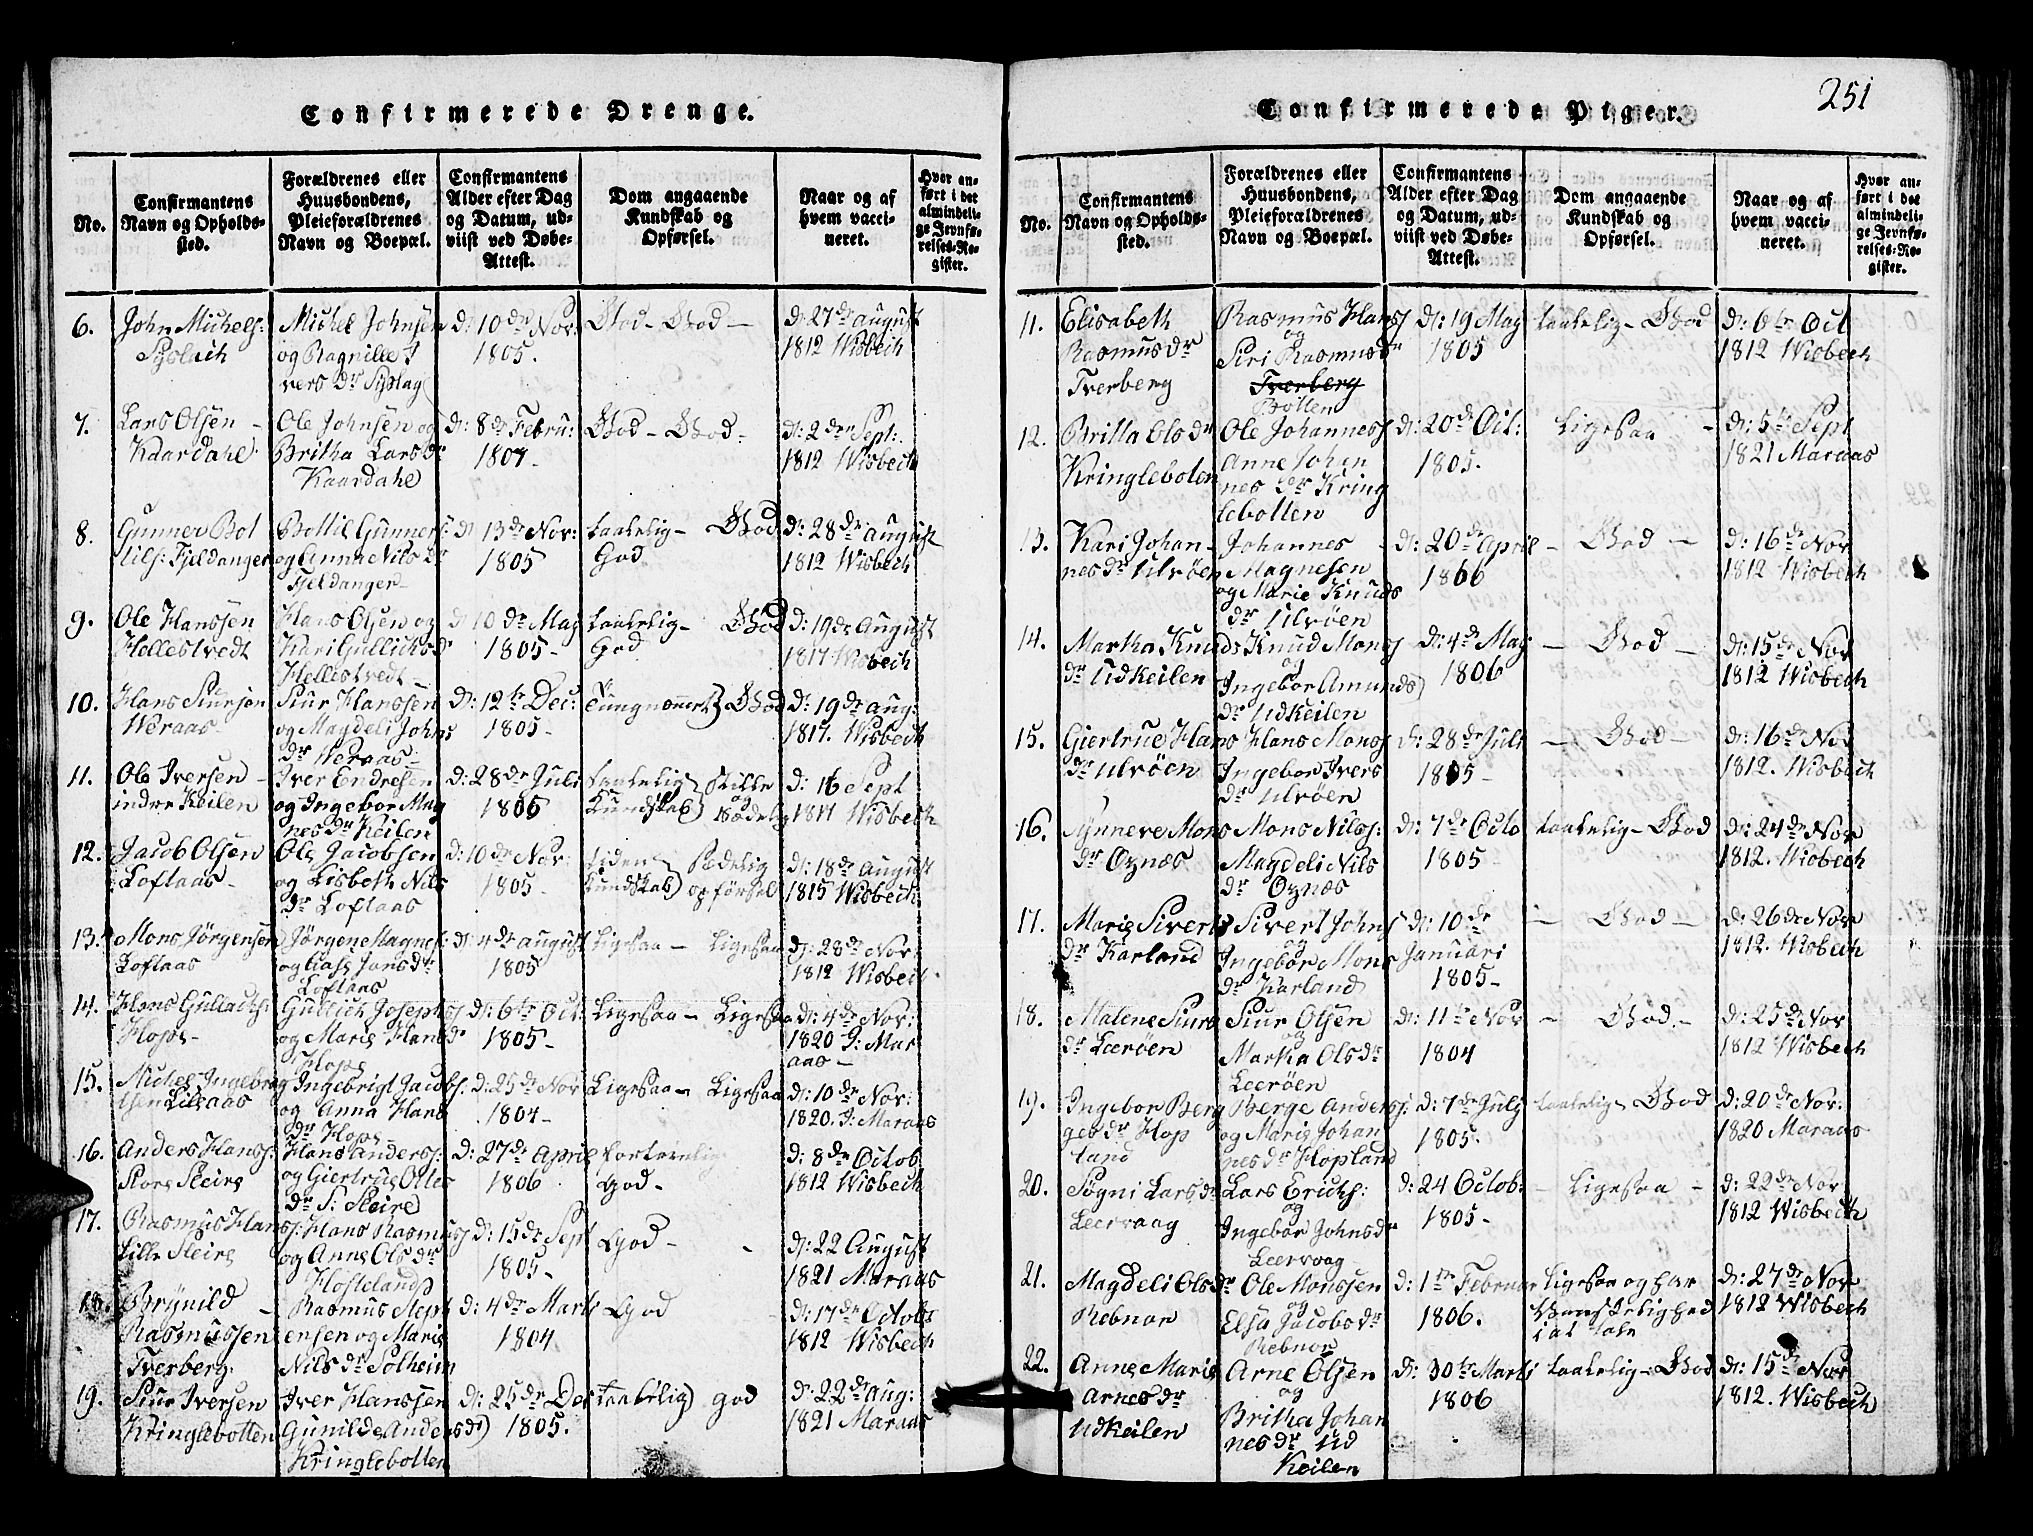 Confirmerede Drenge.
No.
Confirmantens Navn og Opholds-sted.
Forældrenes eller Huusbondens, Pleieforældrenes Navn og Boepæl.
Confirmantens Alder efter Dag og Datum, ud-viist ved Døbe-Attest.
Dom angaaende Kundskab og Opførsel.
Naar og af hvem vacci-neret.
Hvor an-ført i det almindeli-ge Jevnfø-relses-Re-gister.
6.
John Michels:
Michel Johnsen
og Ragnille I
vers dr
d: 10de Nov:
1805.
God - God -
d: 27de August
1812 Wisbech
7.
Lars Olsen -
Kaardahl
Ole Johnsen og
Britha Lars dr
Kaardahl
d: 8de Febru:
God - God -
d: 2den Sept:
1812 Wisbech
8.
Gunner Bot
tils: Fjeldanger
Bottil Gunners:
og Anna Nils dr
Fjeldanger
d: 13de Nov:
1805
taalelig - God
God
d: 28de August
1812 Wisbech
9.
Ole Hanssen
Hellestvedt
Hans Olsen og
Kari Gullichsdr
Hellestvedt -
d: 10de Maj
1805 -
taalelig - God
God
d: 19de August
1817 Wisbech
10.
Hans Siursen
Weraas -
Siur Hanssen
og Magdeli Johns
dr Weraas -
d: 12te Dec:
1805 -
God
d: 19de aug:
1817. Wisbech
11.
Ole Iversen -
indre Keilen
Iver Endresen
og Ingebor Mag
nes dr Keilen
d: 28de Juli
1805
taalelig Stille
Kundskab og Sædelig
d: 16 Sept
1817 Wisbech
12.
Jacob Olsen
Loftaas -
Ole Jacobsen
og Lisbeth Nils
dr Loftaas
d: 10de Nov:
1805 -
Liden Sædelig
Kundskab opførsel
d: 18de August
1815 Wisbech
13.
Mons Jørgensen
Loftaas
Jørgene Magnes:
Loftaas
d: 4de august
1805
Ligesaa - Ligesaa
d: 28de Nov:
1812 Wisbech
14.
Hans Gullachs:
Hope -
Gullich Josephs
og Maris Hansd
Hope
d: 6te Oct:
1805 -
Ligesaa - Ligesaa
d: 4de Nov:
1820 J: Mar
aas -
15.
Michel Ingebrig
tsen Lilleaas
Ingebrigt Jacobs:
og Anna Hans
dr Hope -
d: 25de Nov
1804 -
Ligesaa - Ligesaa
d: 10de Nov:
1820. J: Maraas
16.
Anders Hans:
Store Sleire
Hans Anders:
og Giertrue Olles
dr S: Sleire
d: 27de April
1806
God -
d: 8de Octob
1812 Wisbech
17.
Rasmus Hans:
Lille Sleire
Hans Rasmus
og Anne Ols dr
d: 15de Sept
1805 -
God -
d: 22 August
1821 Maraas
18.
Brynild -
Rasmussen
Tverberg
Rasmus Steph
ensen og Maris
Nils dr Solheim
d: 4de Marti
1804
God
d: 17de Octob:
1812 Wisbech
19.
Siur Iversen
Kringlebotten
Iver Hanssen
Gunilde Anders
dr
Kringlebotten
d: 25de Dec
1805.
taalelig god
d: 22de aug:
1821 Maraas
251
Confirmerede Piger.
No.
Confirmantens Navn og Opholds-sted.
Forældrenes eller Huusbondens, Pleieforældrenes Navn og Boepæl.
Confirmantens Alder efter Dag og Datum, ud-viist ved Døbe-Attest.
Dom angaaende Kundskab og Opførsel.
Naar og af hvem vacci-neret.
Hvor an-ført i det almindeli-ge Jevnfø-relses-Re-gister.
11.
Elisabeth
Rasmus dr
Tverberg
Rasmus Hans
og
Siri Rasmusdr
Tverberg
Botten
d: 19 Maj
1805
taalelig - God
d: 6te Oct
1812 Wisbech
12.
Britta Ols dr
Kringleboten
Ole Johannes
Anne Johan
nes dr Kring
lebotten
d: 20de Oct:
1805.
Ligesaa -
d: 5te Sept
1821 Maraas
13.
Kari Johan-
nes dr Ulvøen
Johannes -
Magnesen
og Marie Knuds
dr Ulvøen
d: 20de April
1806
- God -
d: 16de Nov
1812 Wisbech
14.
Martha Knuds
dr Udkeilen
Knud Mons
og
Ingebor Amunds
dr Udkeilen
d: 4de Maj
1806
- God -
d: 15de Nov
1812 Wisbech
15.
Giertrue Hans
dr Ulvøen
Hans Mons
Ingebor Ivers
dr Ulvøen
d: 28de Juli
1805 -
- God -
d: 16de Nov
1812. Wisbech
16.
Synneve Mons
dr Øznæs
Mons Nils:
Magdeli Nils
dr Øznæs
d: 7de Octo
1805 -
taalelig - God
d: 24de Nov
1812. Wisbech
17.
Maris Siverts
dr Karland
Sivert Johns
og
Ingebor Mons
dr Karland
d: 10de
Januari
1805 -
- God -
d: 26de Nov
1812. Wisbech
18.
Malene Siurs
dr Leerøen
Siur Olsen
og
Martha Ols dr
Leerøen
d: 11te Nov
1804
- God -
d: 25de Nov
1812 Wisbech
19.
Ingebor Berg
ges dr Hop
land
Berge Anders:
og Maris Johan
nes dr Hopland
d: 7de July
1805.
taalelig - God
d: 20de Nov:
1820 Maraas
20.
Søgni Lars dr
Leervaag
Lars Erichs:
og
Ingebor Johns dr
Leervaag
d: 24 Octob:
1805 -
- Ligesaa -
d: 22de Nov
1812 Wisbech
21.
Magdeli Ols dr
Rebnor
Ole Monssen
og
Elsa Jacobs dr
Rebnor
d: 1ste Februar
1806.
Ligesaa og har
Vanskelighed
i at tale
d: 27de Nov
1812 Wisbech
22.
Anne Marie
Arnes dr
Udkeilen
Arne Olsen
og
Britha Johan
nes dr Ud
Keilen
d: 30te Marti
1806
taalelig - God
d: 15de Nov
1812. Wisbech